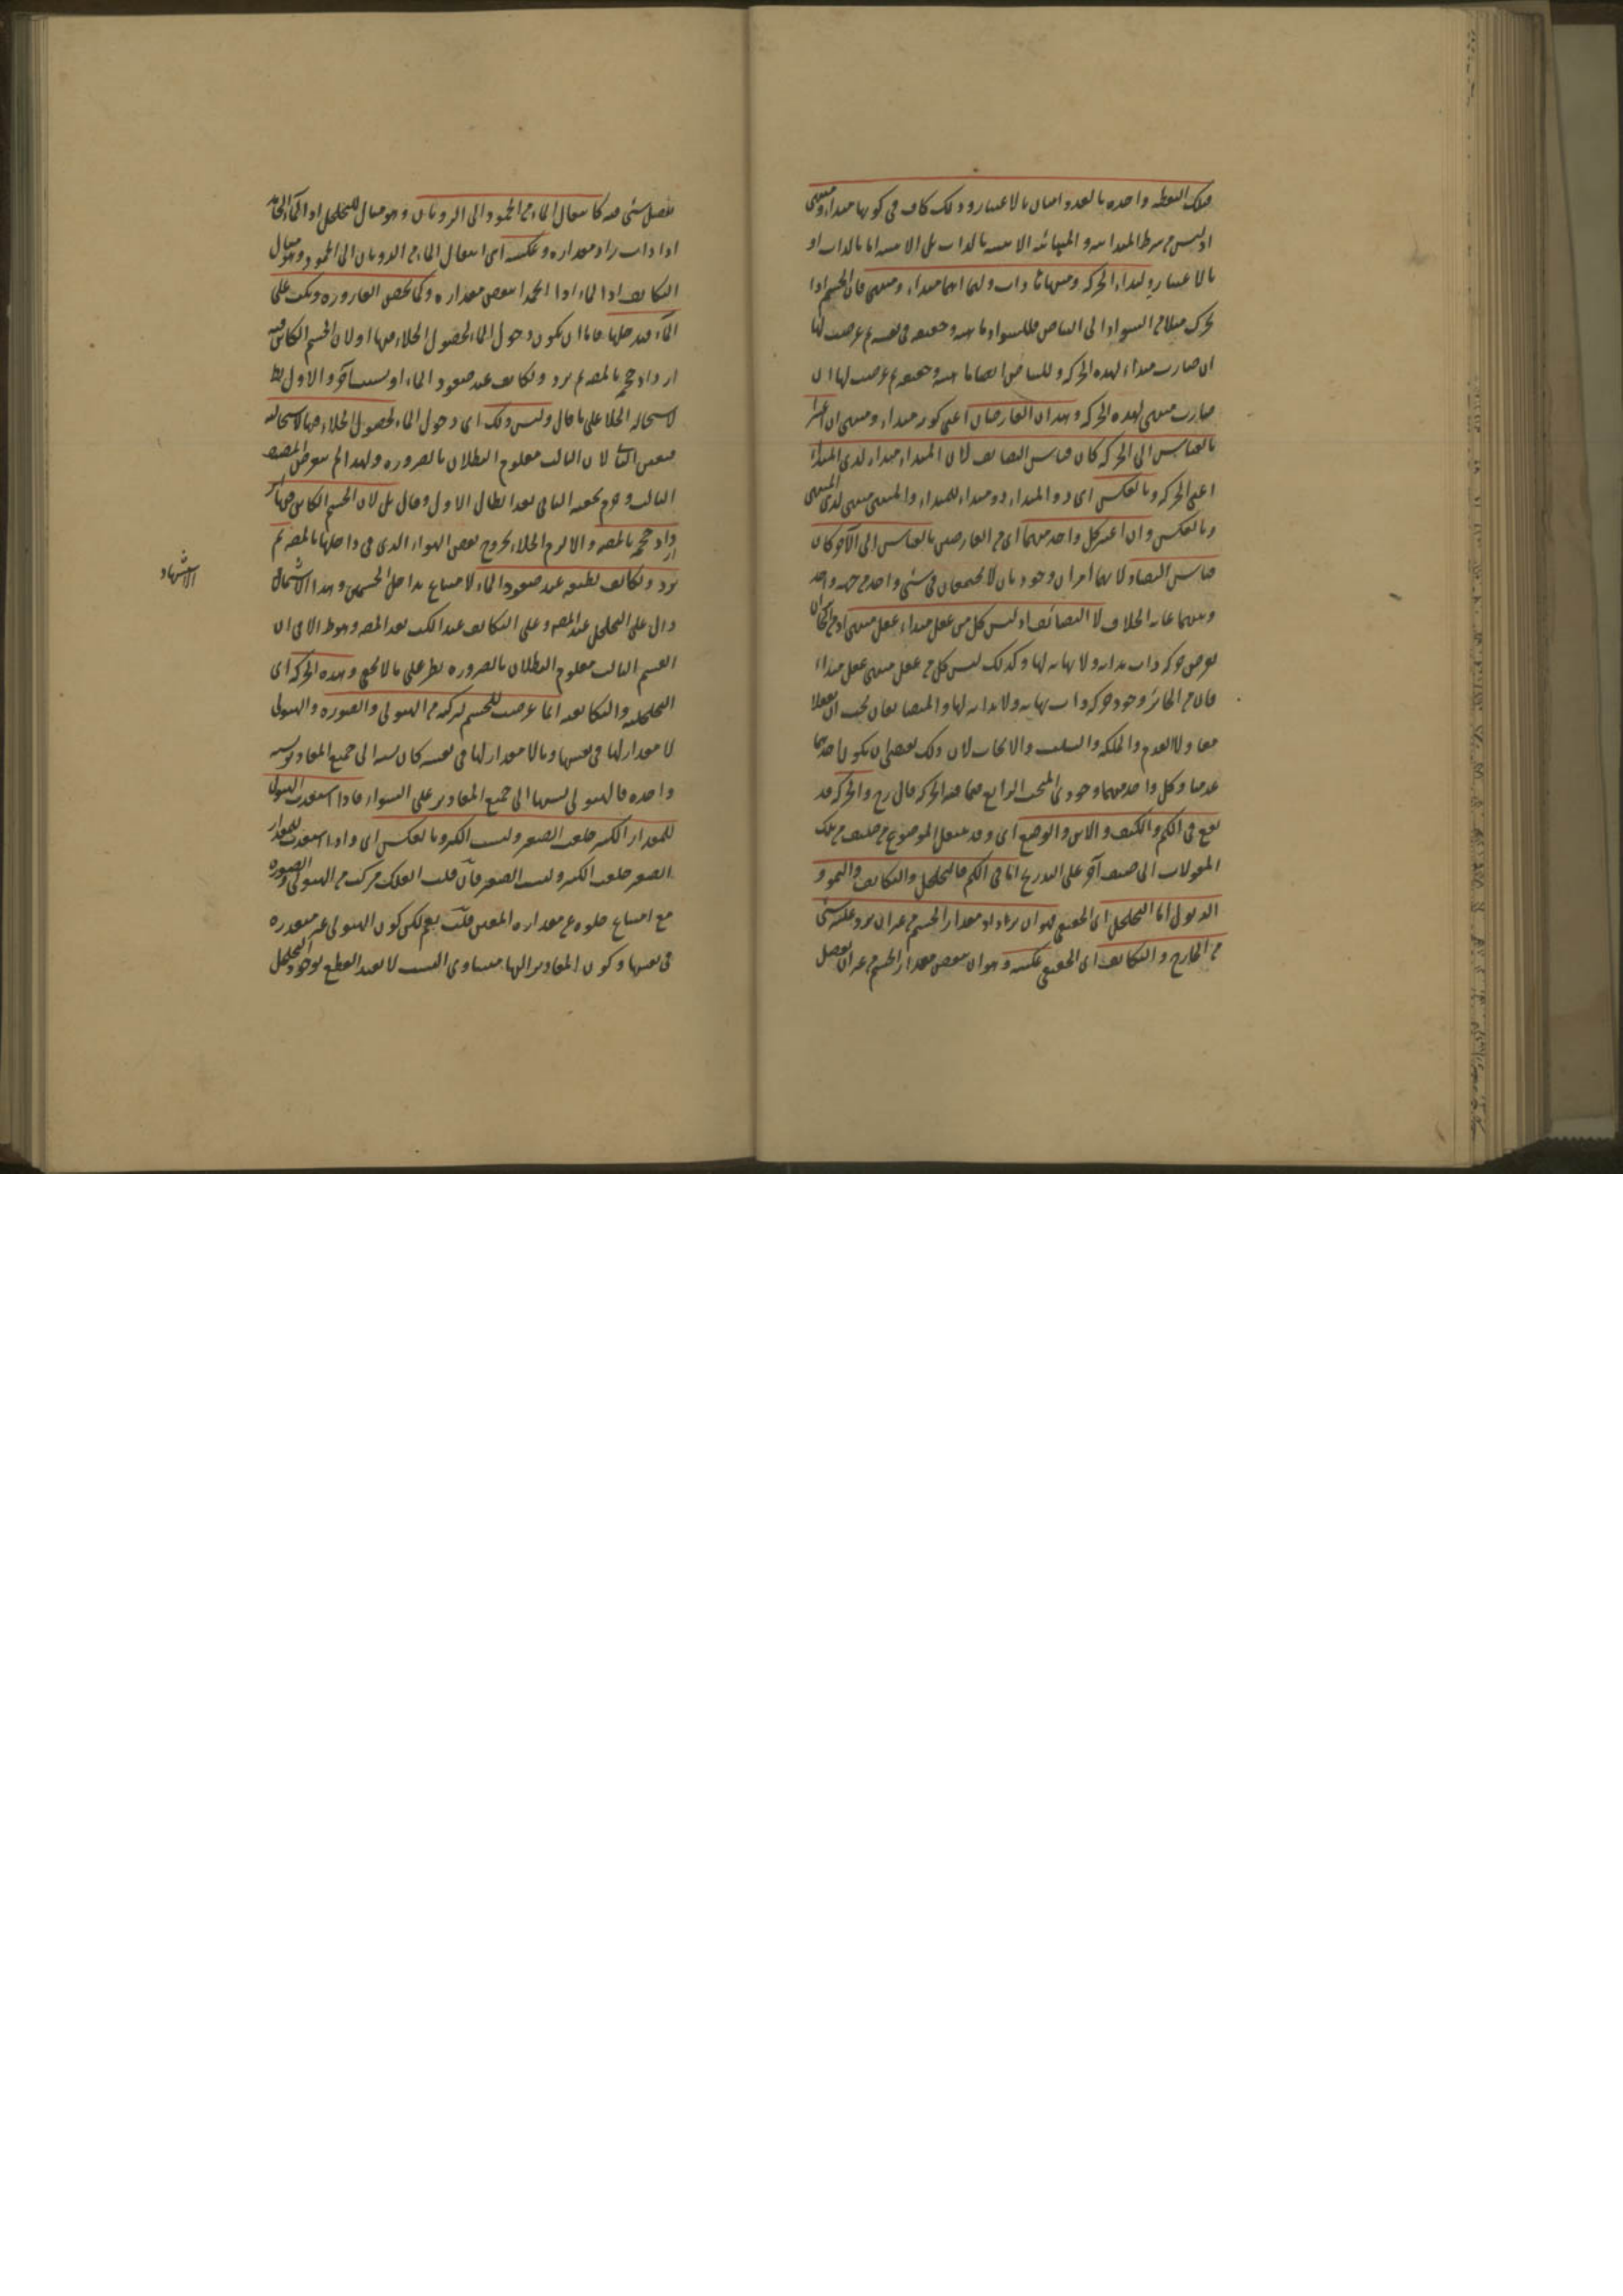 فتلك النقطة واحدة بالعدد اثنان بالاعتبار وذلك كاف في كونها مبداء ومنتهى
اذ ليس من شرط المبدائية والمنتهائية الاثنينية بالذات بل الاثنينية اما بالذات او
بالاعتبار ولمبداء الحركة ومنتهاها ذات ولهما انهما مبداء ومنتهى فان الجسم اذا
تحرك مثلا من السواد الى البياض فللسواد ماهية وحقيقة في نفسه ثم عرضت لها
ان صارت مبداء لهذه الحركة وللبياض ايضا ماهية وحقيقة ثم عرضت لها ان
صارت منتهى لهذه الحركة وهذان العارضان اعني كونه مبداء ومنتهى ان اعتبرا
بالقياس الى الحركة كان قياس التضايف لان المبداء مبداء لذي المبداء
اعني الحركة وبالعكس اى ذو المبداء ذو مبداء للمبداء والمنتهى منتهى لذي المنتهى
وبالعكس وان اعتبر كل واحد منهما اى من العارضين بالقياس الى الآخر كان
قياس التضاد لانهما امران وجوديان لا يجتمعان في شئ واحد من جهة واحدة
وبينهما غاية الخلاف لا التضائف اذ ليس كل من عقل مبداء عقل منتهى اذ من الجائز ان
يعرض حركة ذات بداية ولا نهاية لها وكذلك ليس كل من عقل منتهى عقل مبداء
فان من الجائز وجود حركة ذات نهاية ولا بداية لها والمتضايفان يجب ان يعقلا
معا ولا العدم والملكة والسلب والايجاب لان ذلك يقتضي ان يكون احدهما
عدميا وكل واحد منهما وجودي المبحث الرابع فيما فيه الحركة قال رح والحركة قد
تقع في الكم والكيف والاين والوضع اى وقد ينتقل الموضوع من صنف من تلك
المقولات الى صنف آخر على التدريج اما في الكم فالتخلخل والتكاثف والنمو و
الذبول اما التخلخل اى الحقيقي فهو ان يزداد مقدار الجسم من غير ان يرد عليه شئ
من الخارج والتكاثف اى الحقيقي عكسه وهو ان ينقص مقدار الجسم من غير ان يفصل
ينفصل شئ منه كانتقال الماء من الجمود الى الذوبان وهو مثال للتخلخل اذ الماء الجامد
اذا ذاب زاد مقداره وعكسه اى انتقال الماء من الذوبان الى الجمود وهو مثال
التكاثف اذ الماء اذا انجمد انتقص مقداره وكما تمص القارورة وتكب على
الماء فيدخلها فاما ان يكون دخول الماء لحصول الخلاء فيها او لان الجسم الكائن فيه
ازداد حجمه بالمص ثم برد وتكاثف عند صعود الماء او لسبب آخر والاول بط
لاستحالة الخلا على ما قال وليس ذلك اى دخول الماء لحصول الخلاء فيها لاستحالته
فتعين الثاني لان الثالث معلوم البطلان بالضرورة ولهذا لم يتعرض المصنف
الثالث وجزم بحقية الثاني بعد ابطال الاول وقال بل لان الجسم الكائن فيها
ازداد حجمه بالمص والا لزم الخلاء بخروج بعض الهواء الذي في داخلها بالمص ثم
برد وتكاثف بطبعه عند صعود الماء لامتناع تداخل الجسمين وهذا الاشتمال
الاستشهاد
دال على التخلخل عند المص وعلى التكاثف عند الكب بعد المص وهو ظ الا في ان
القسم الثالث معلوم البطلان بالضرورة نظر على ما لا يخفى وهذه الحركة اى
التخلخلية والتكاثفية انما عرضت للجسم لتركبه من الهيولى والصورة والهيولى
لا مقدار لها في نفسها وما لا مقدار لها في نفسه كان نسبة الى جميع المقادير نسبة
واحدة فالهيولى نسبتها الى جميع المقادير على السواء فاذا استعدت الهيولى
للمقدار الكبير خلعت الصغير ولبست الكبير وبالعكس اى واذا استعدت للمقدار
الصغير خلعت الكبير ولبست الصغير فان قلت الفلك مركب من الهيولى والصورة
مع امتناع خلوه عن مقداره المعين قلت نعم لكن كون الهيولى غير متقدرة
في نفسها وكون المقادير اليها متساوي النسب لا يفيد القطع بوجود التخلخل